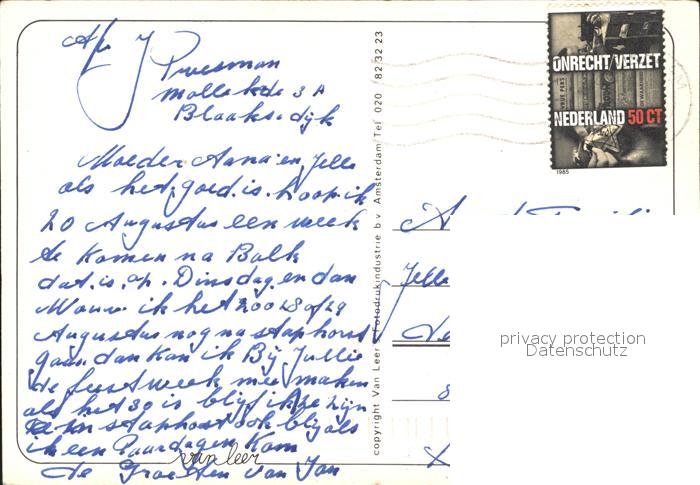 Afz J Pruesman
3 A
Blaaks. dijk
Moeder Anna en Jelle
als het. goed. is. hoop. ik
20 Augustus een week
te Komen na Balk
dat. is. op. Dinsdag. en dan
ik het zoo 28 of 29
Augustus nog na staphorst
gaan dan kan ik Bij Jullie
de feest week mee maken
als het zo is blijf ik
staphost ook blij als
ik een Paar dagen Kom
de Groeten van Jan
van leer
copyright Van Leer's Fotodrukindustrie b.v. Amsterdam Tel. 020 / 82 32 23
ONRECHT/VERZET
NEDERLAND 50 CT
1985
Jelle
privacy protection
Datenschutz